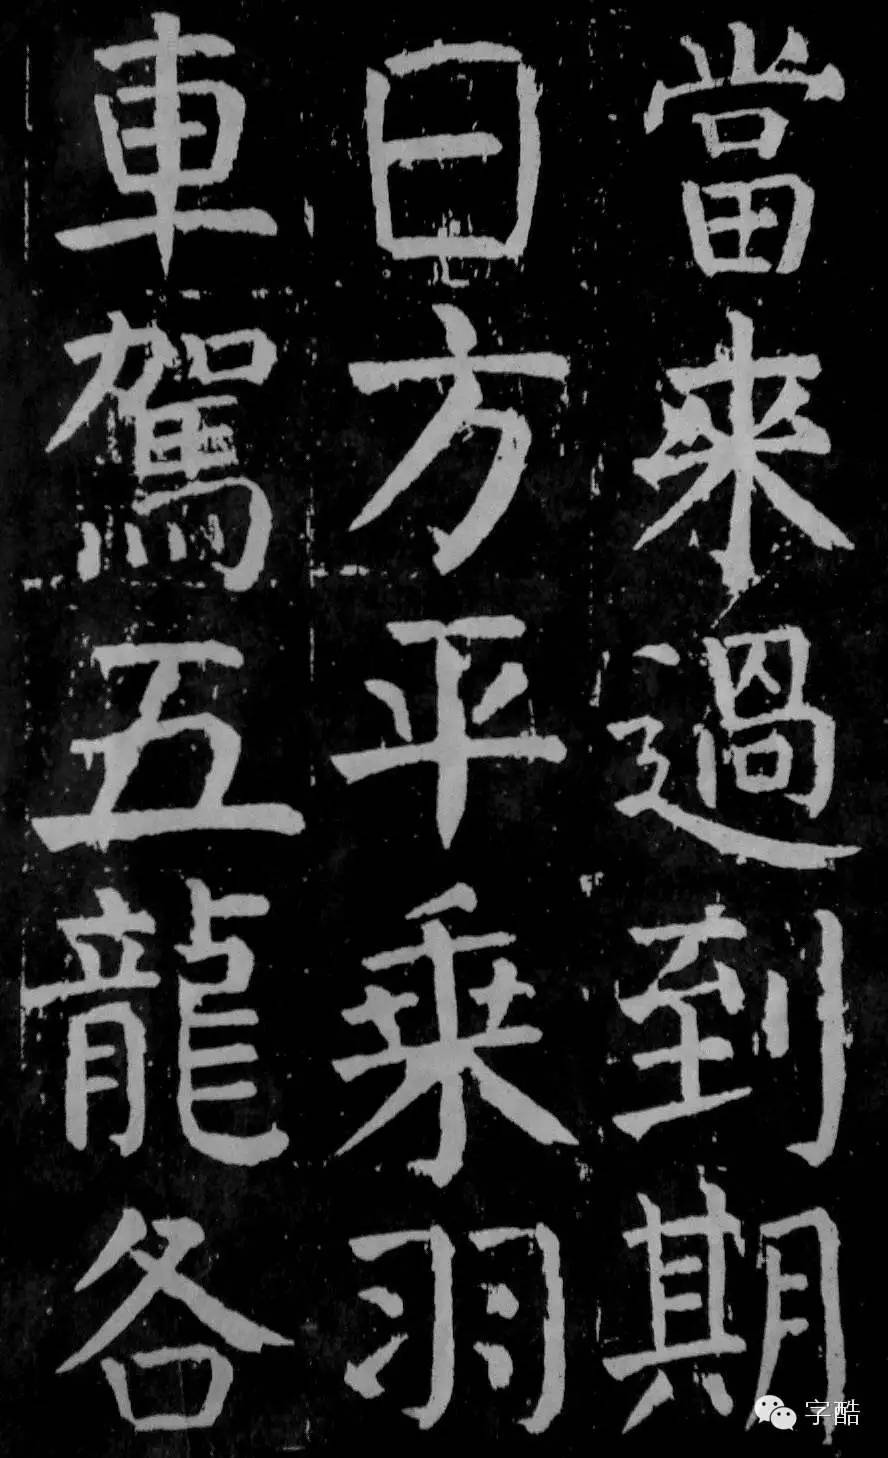 當来過到期
日方平乗羽
車駕五龍各
字酷